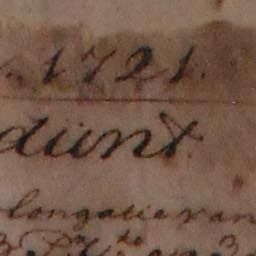 1721.
dünt
longatie van